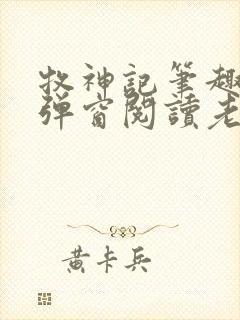 牧神記筆趣
彈窗閱讀老
黄卡兵